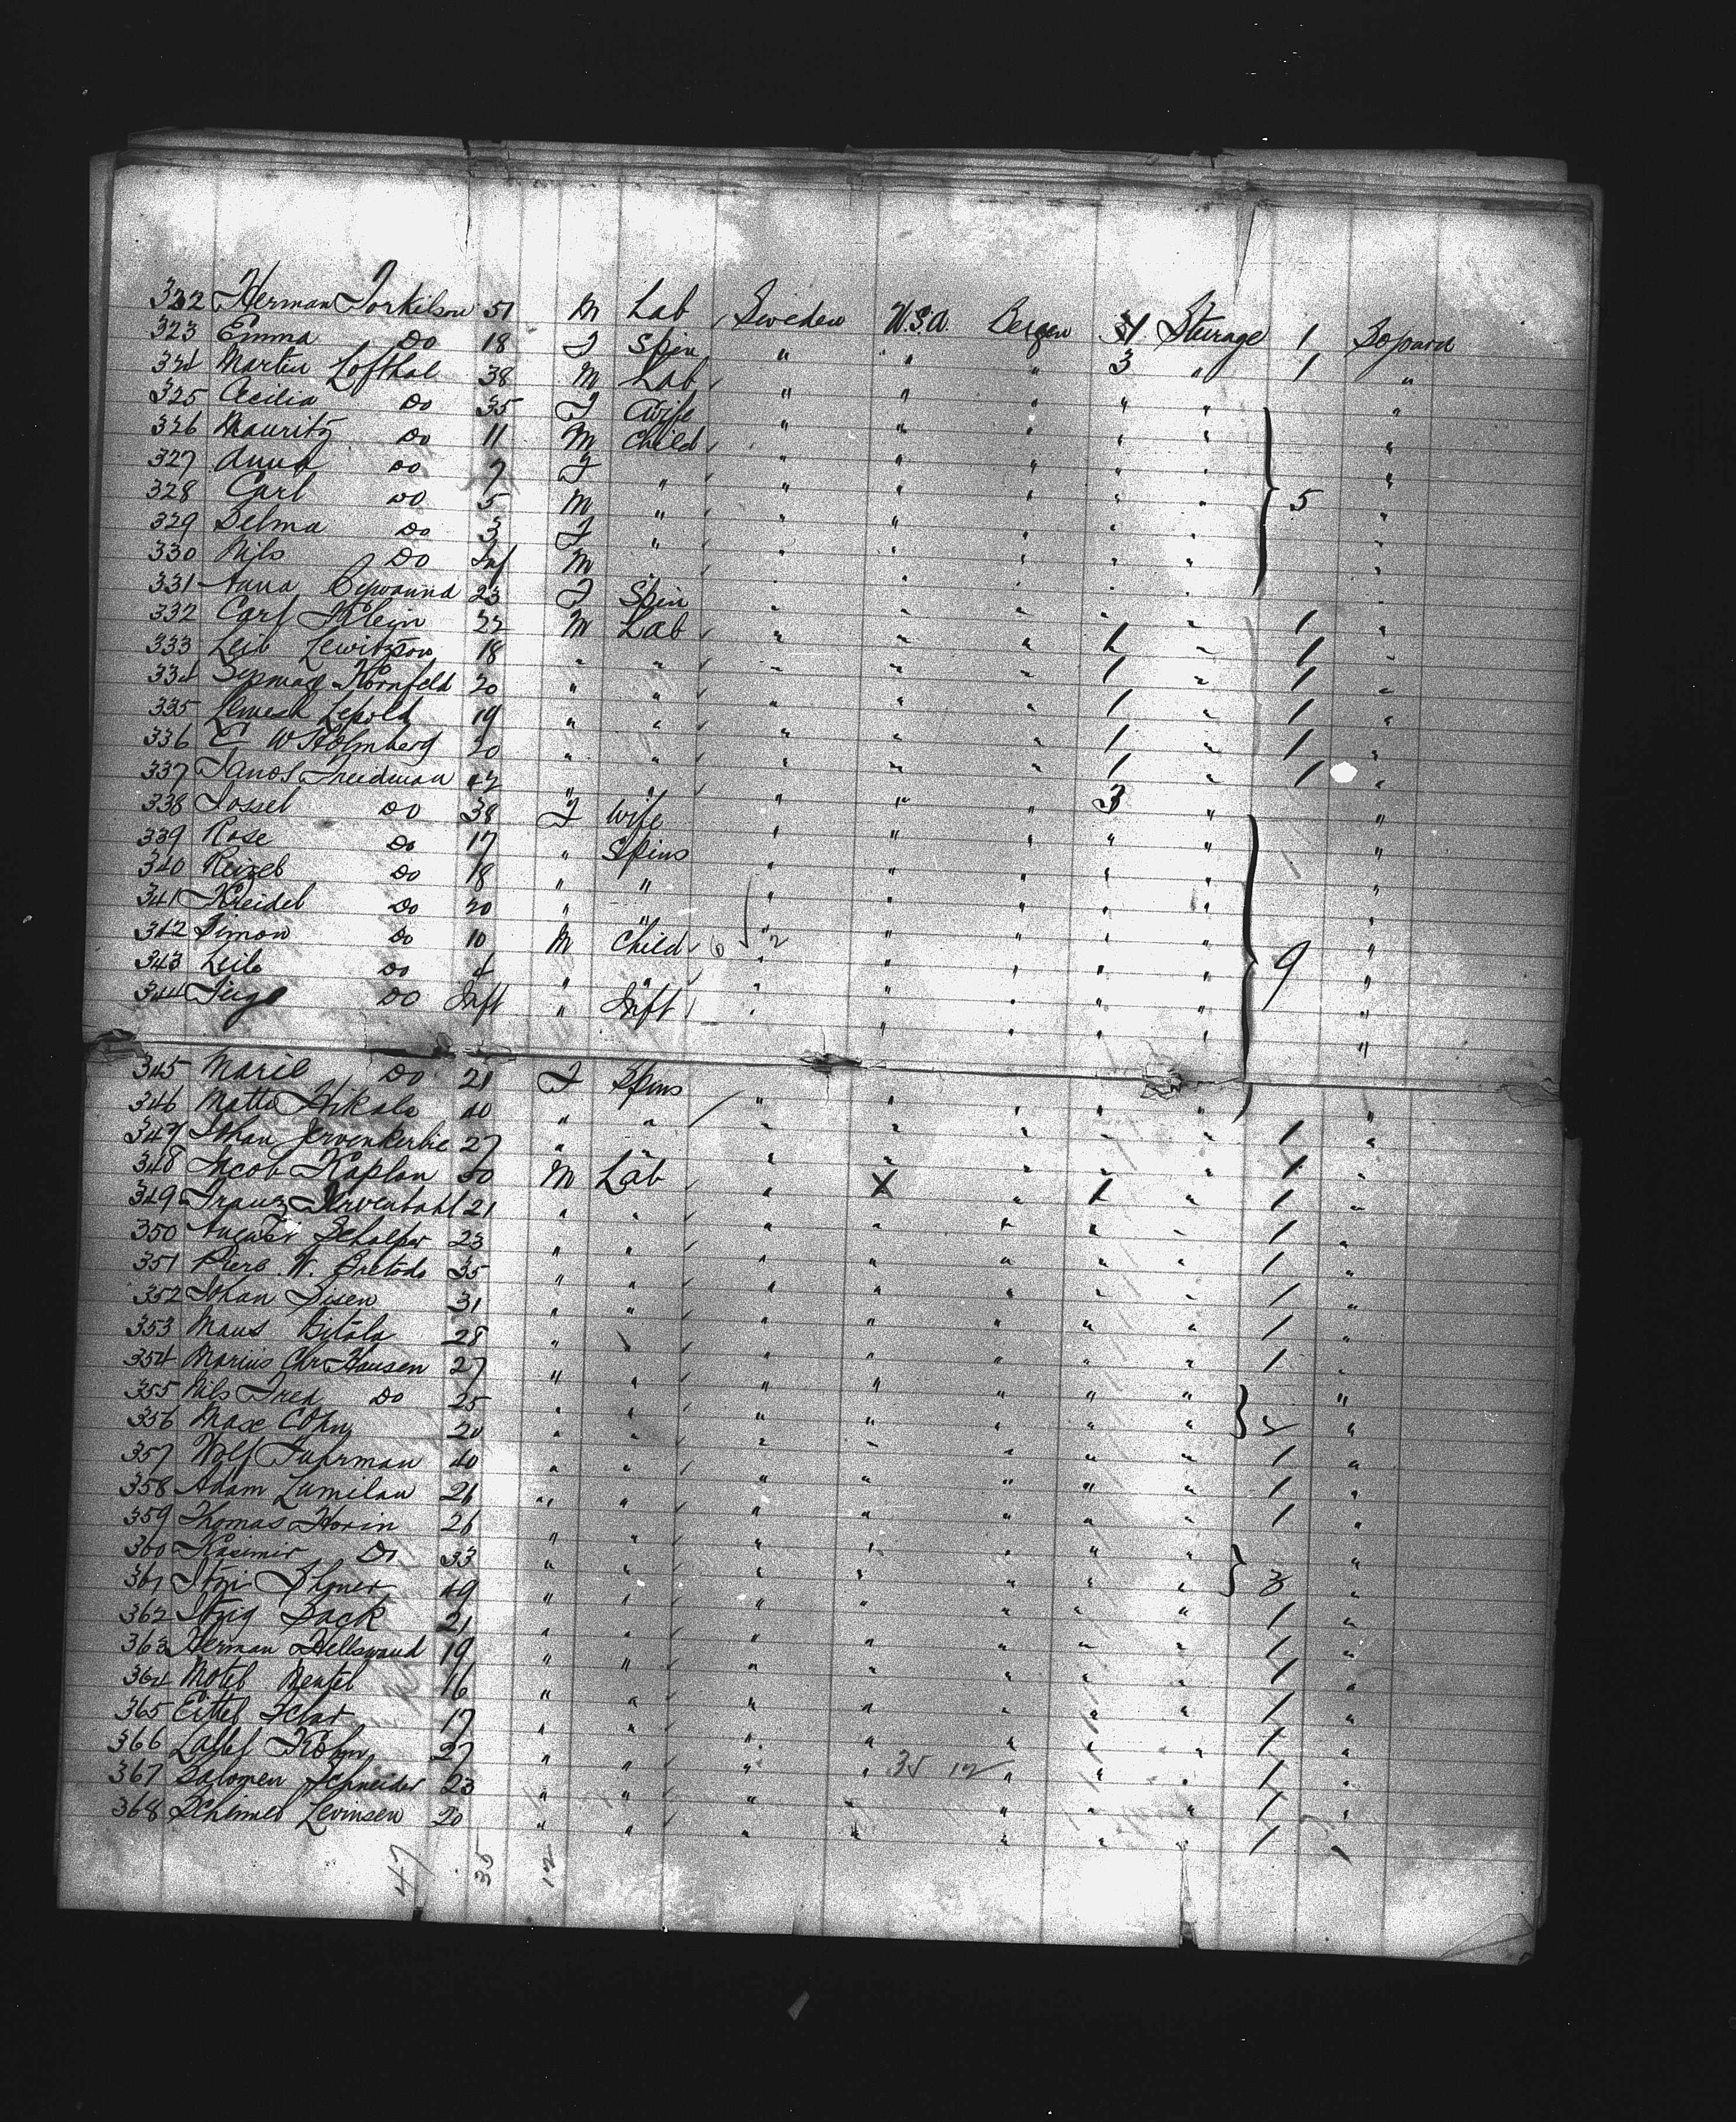 322 Herman Torkilson 51 M Lab Sweden U.S.A. Bergen 4 Steurage 1
323 Emma Do 18 F Spin " " " 3 " 1 "
324 Martin Lofthal 38 M Lab " " " " " "
325 Cecilia Do 35 F Wife " " " " " "
326 Mauritz Do 11 M Child " " " " " "
327 Anna Do 7 F " " " " " " "
328 Carl Do 5 M " " " " " " 5 "
329 Selma Do 3 F " " " " " " "
330 Nils Do Inf M " " " " " "
331 Anna 23 F Spin " " " " " 1 "
332 Carl Klein 22 M Lab " " " 1 " 1 "
333 Leib Lewitzson 18 " " " " " 1 " 1 "
334 Kornfeld 20 " " " " " 1 " 1 "
335 Lepold 19 " " " " " 1 " 1 "
336 C W Holmberg 20 " " " " " 1 " 1 "
337 Janos Freidman 42 " " " " " 3 " "
338 Jossel Do 38 F Wife " " " " " "
339 Rose Do 17 " Spins " " " " " "
340 Reizel Do 18 " " " " " " " "
341 Kreidel Do 20 " " " " " " " "
342 Simon Do 10 M Child 6 " 2 " " " " 9 "
343 Leib Do 4 " " " " " " " "
344 Feige Do Inft " Inft " " " " " "
345 Marie Do 21 F Spins " " " " " "
346 Matta Hikala 40 " " " " " " " 1 "
347 Johan 27 " " " " " " " 1 "
348 Jacob Kaplan 50 M Lab " X " 1 " 1 "
349 Franz 21 " " " " " " " 1 "
350 August 23 " " " " " " " 1 "
351 W. 35 " " " " " " " 1 "
352 Johan Sisen 31 " " " " " " " 1 "
353 Maus 28 " " " " " " " 1 "
354 Marius Chr Hansen 27 " " " " " " " "
355 Nils Fred Do 25 " " " " " " " 2 "
356 Max Cohn 20 " " " " " " " 1 "
357 Wolf Fuhrman 40 " " " " " " " 1 "
358 Adam Lumilan 26 " " " " " " " 1 "
359 Thomas Horin 26 " " " " " " " "
360 Kasimir Do 33 " " " " " " " 2 "
361 49 " " " " " " " 1 "
362 Itzig Sack 21 " " " " " " " 1 "
363 Herman 19 " " " " " " " 1 "
364 Motel 16 " " " " " " " 1 "
365 17 " " " " " " " 1 "
366 Köhn 27 " " " " " " " 1 "
367 Salomen Schneider 23 " " " " 35 12 " " " 1 "
368 Levinsen 20 " " " " " " " 1 "
47 35 12